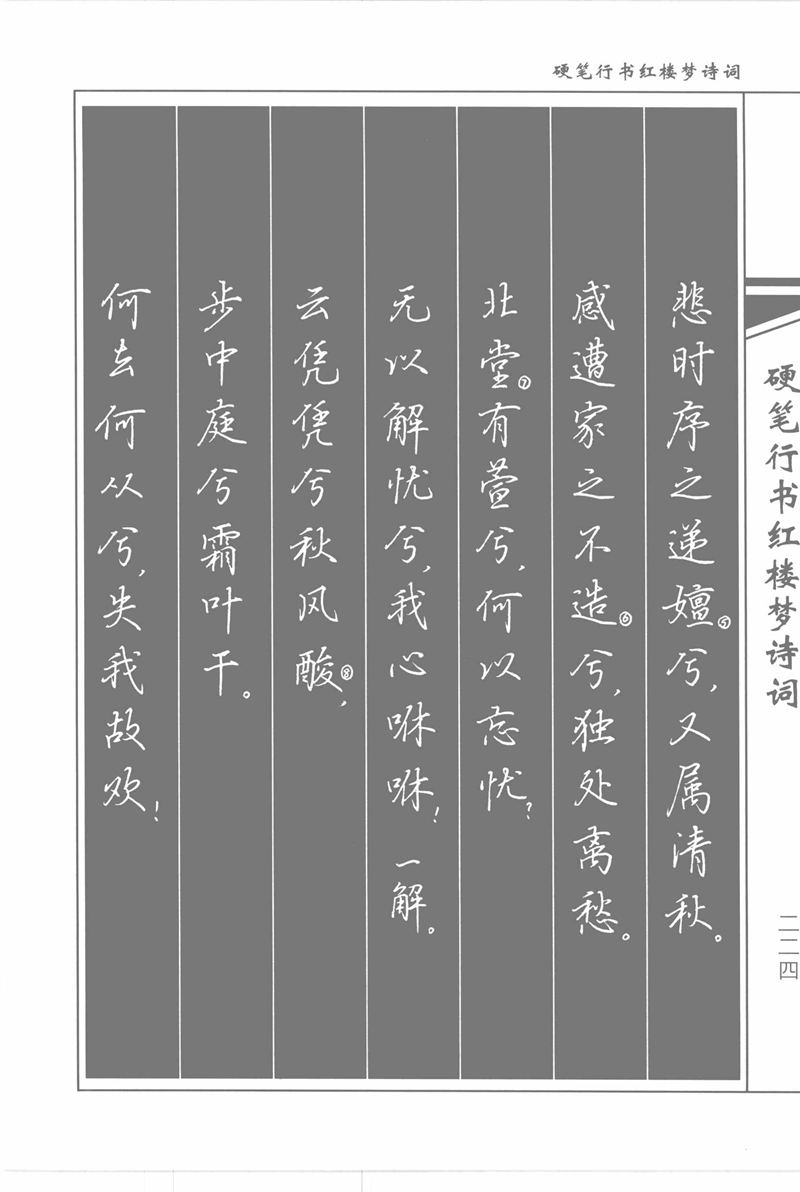 硬笔行书红楼梦诗词
悲时序之递嬗⑤兮，又属清秋。
感遭家之不造⑥兮，独处离愁。
北堂⑦有萱兮，何以忘忧？
无以解忧兮，我心咻咻！一解。
云凭凭兮秋风酸⑧，
步中庭兮霜叶干。
何去何从兮，失我故欢！
硬笔行书红楼梦诗词
二二四